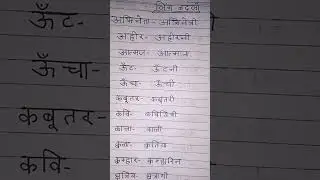 लिंग बदलो
अभिनेता- अभिनेत्री
अहीर- अहीरनी
आत्मज- आत्मजा
ऊँट- ऊँटनी
ऊँचा- ऊँची
कबूतर- कबूतरी
कवि- कवियित्री
काला- काली
कुत्ता- कुतिया
कुम्हार- कुम्हारिन
क्षत्रिय- क्षत्राणी
ऊँट-
ऊँचा-
कबूतर-
कवि-